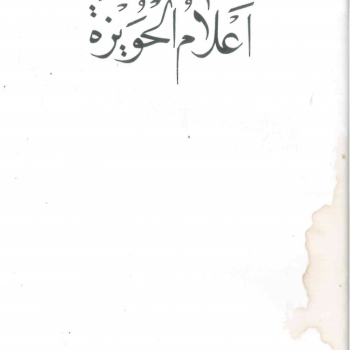 أَعْلَامُ الْحُوَيْزَة